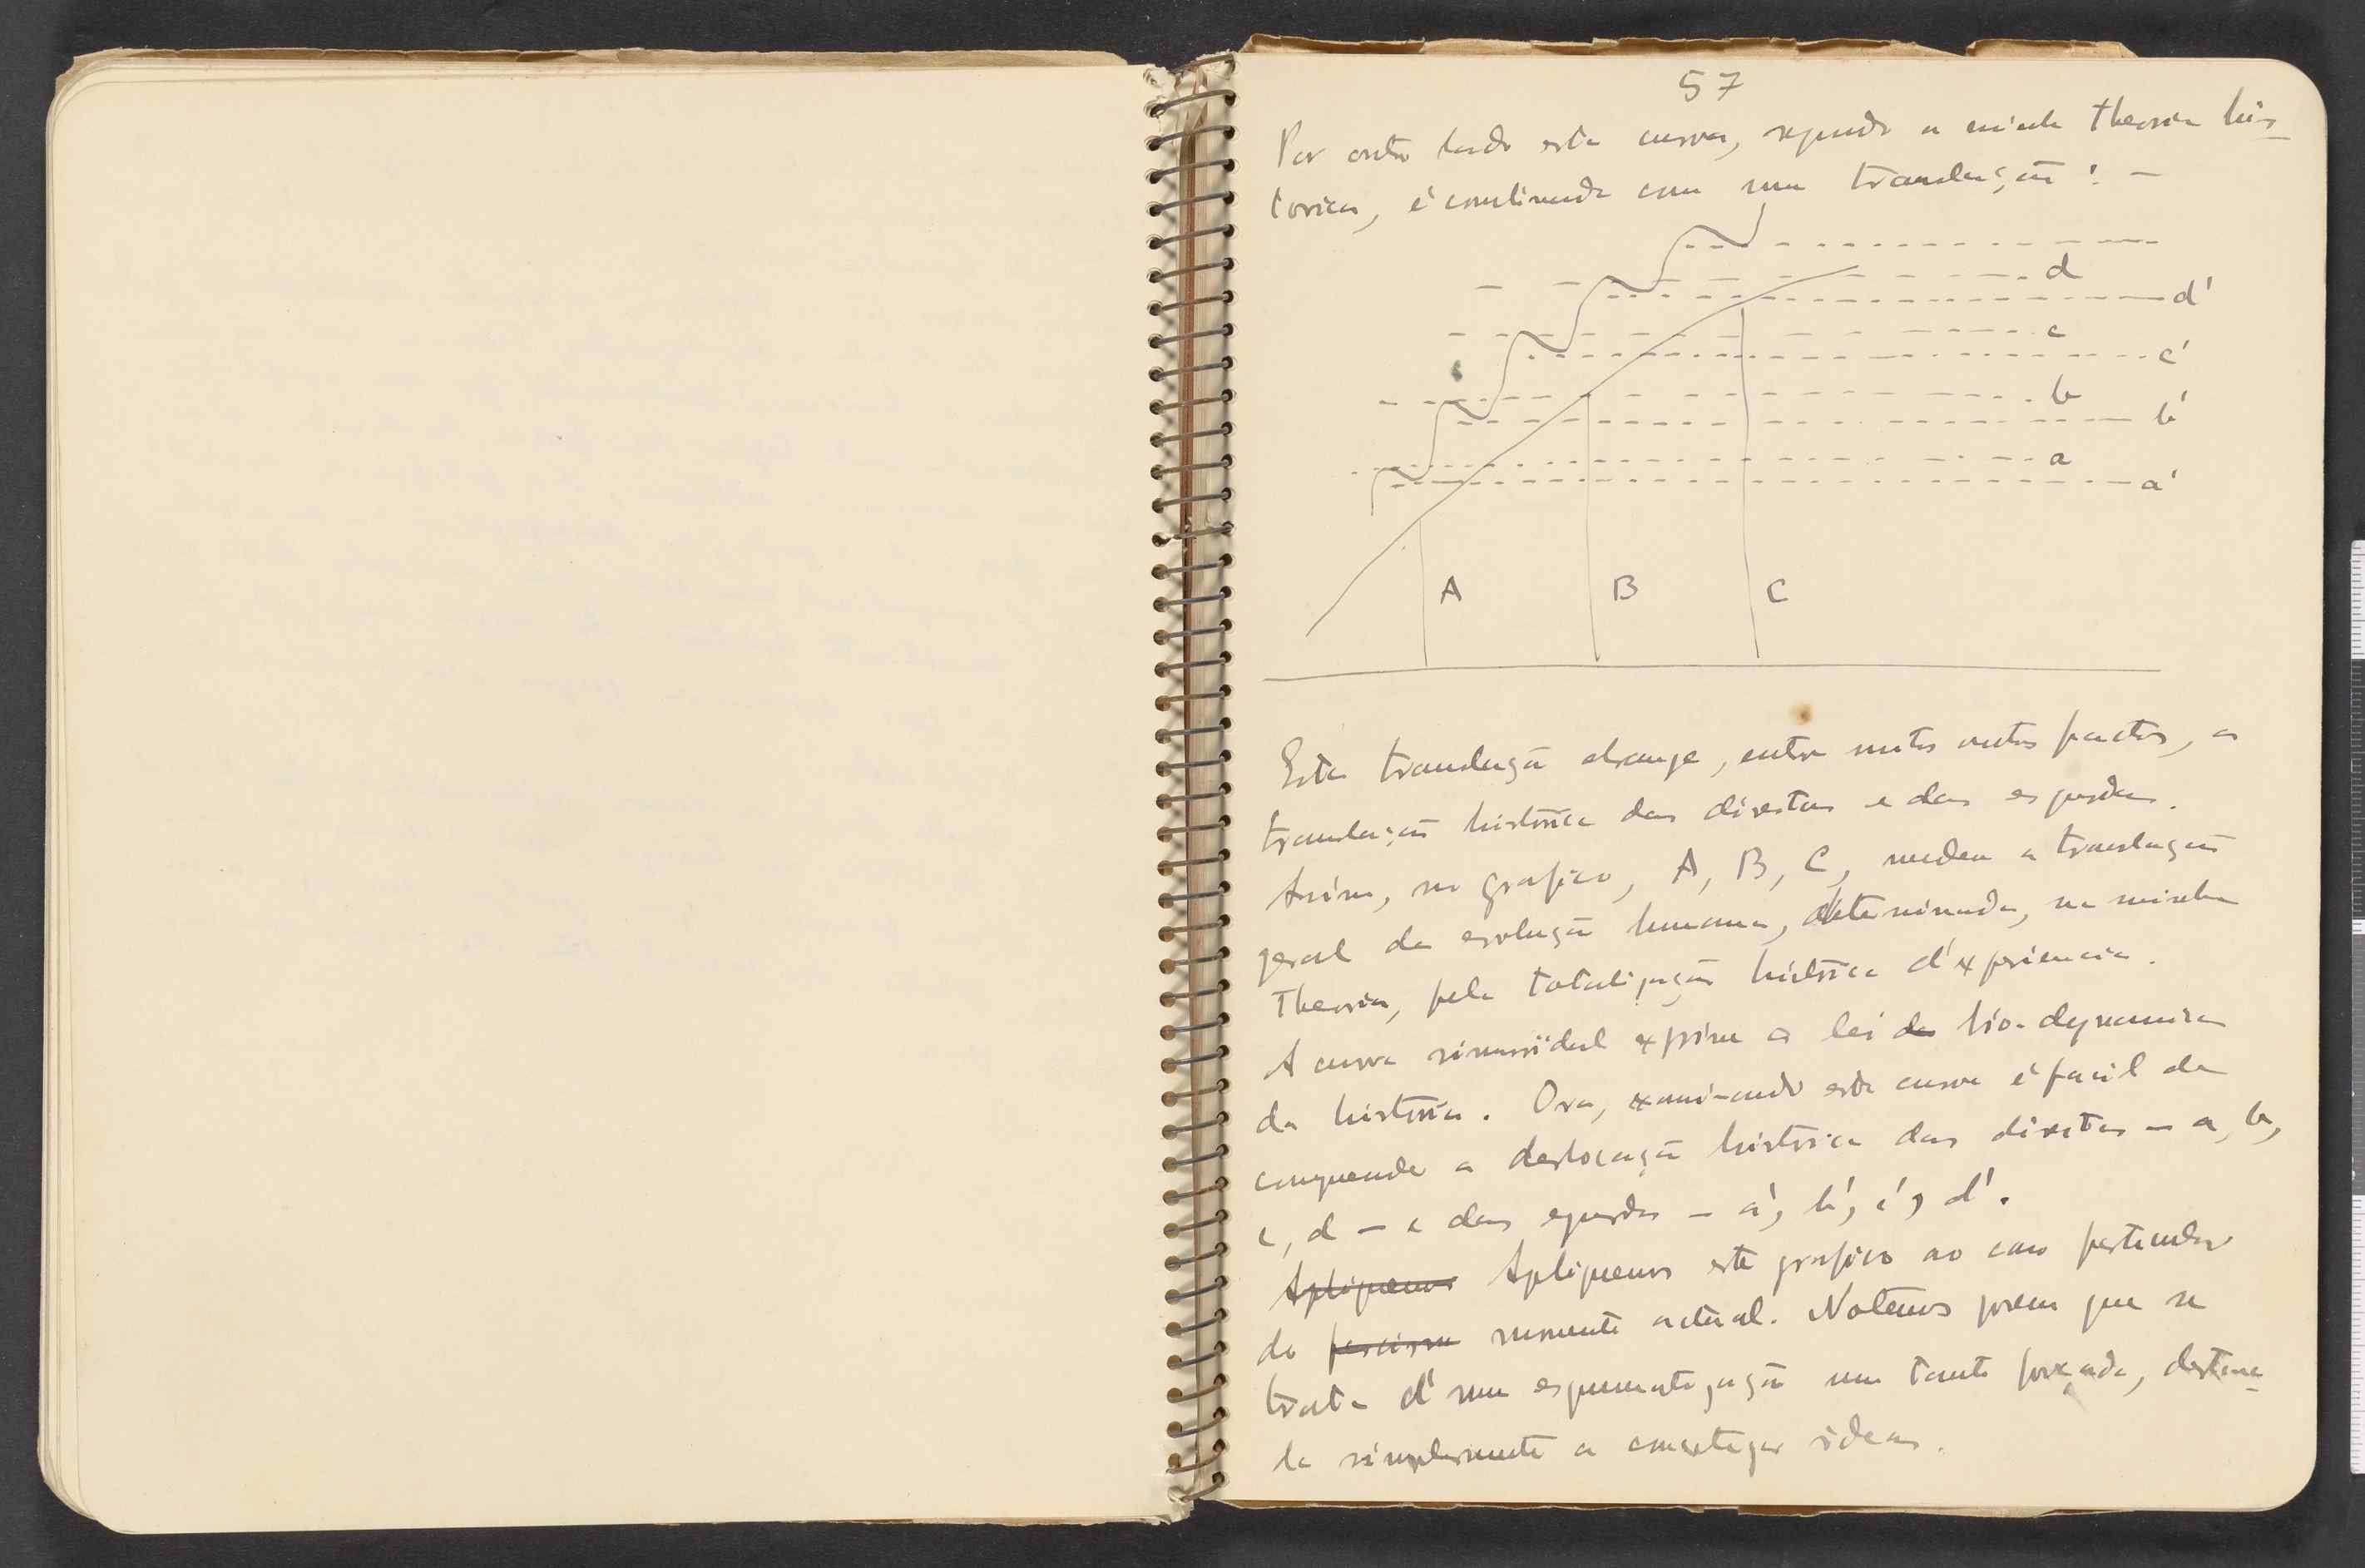 57
Por outro lado esta curva, segundo a minha theoria his-
torica, é combinada com uma translação: —
d
d'
c
c'
b
b'
a
a'
A B C
Esta translação abrange, entre muitos outros factos, a
translação histórica das direitas e das esquerdas.
Assim, no grafico, A, B, C, medem a translação
geral da evolução humana, determinada, na minha
theoria, pela totalização histórica d'experiencia.
A curva sinusoidal exprime a lei da bio-dynamica
da história. Ora, examinando esta curva é facil de
comprehender a deslocação histórica das direitas — a, b,
c, d — e das esquerdas — a', b', c', d'.
Apliquemos Apliquemos este grafico ao caso particular
do fascismo momento actual. Notemos porem que se
trata d'uma esquematização um tanto forçada, destina-
da simplesmente a concretizar ideas.